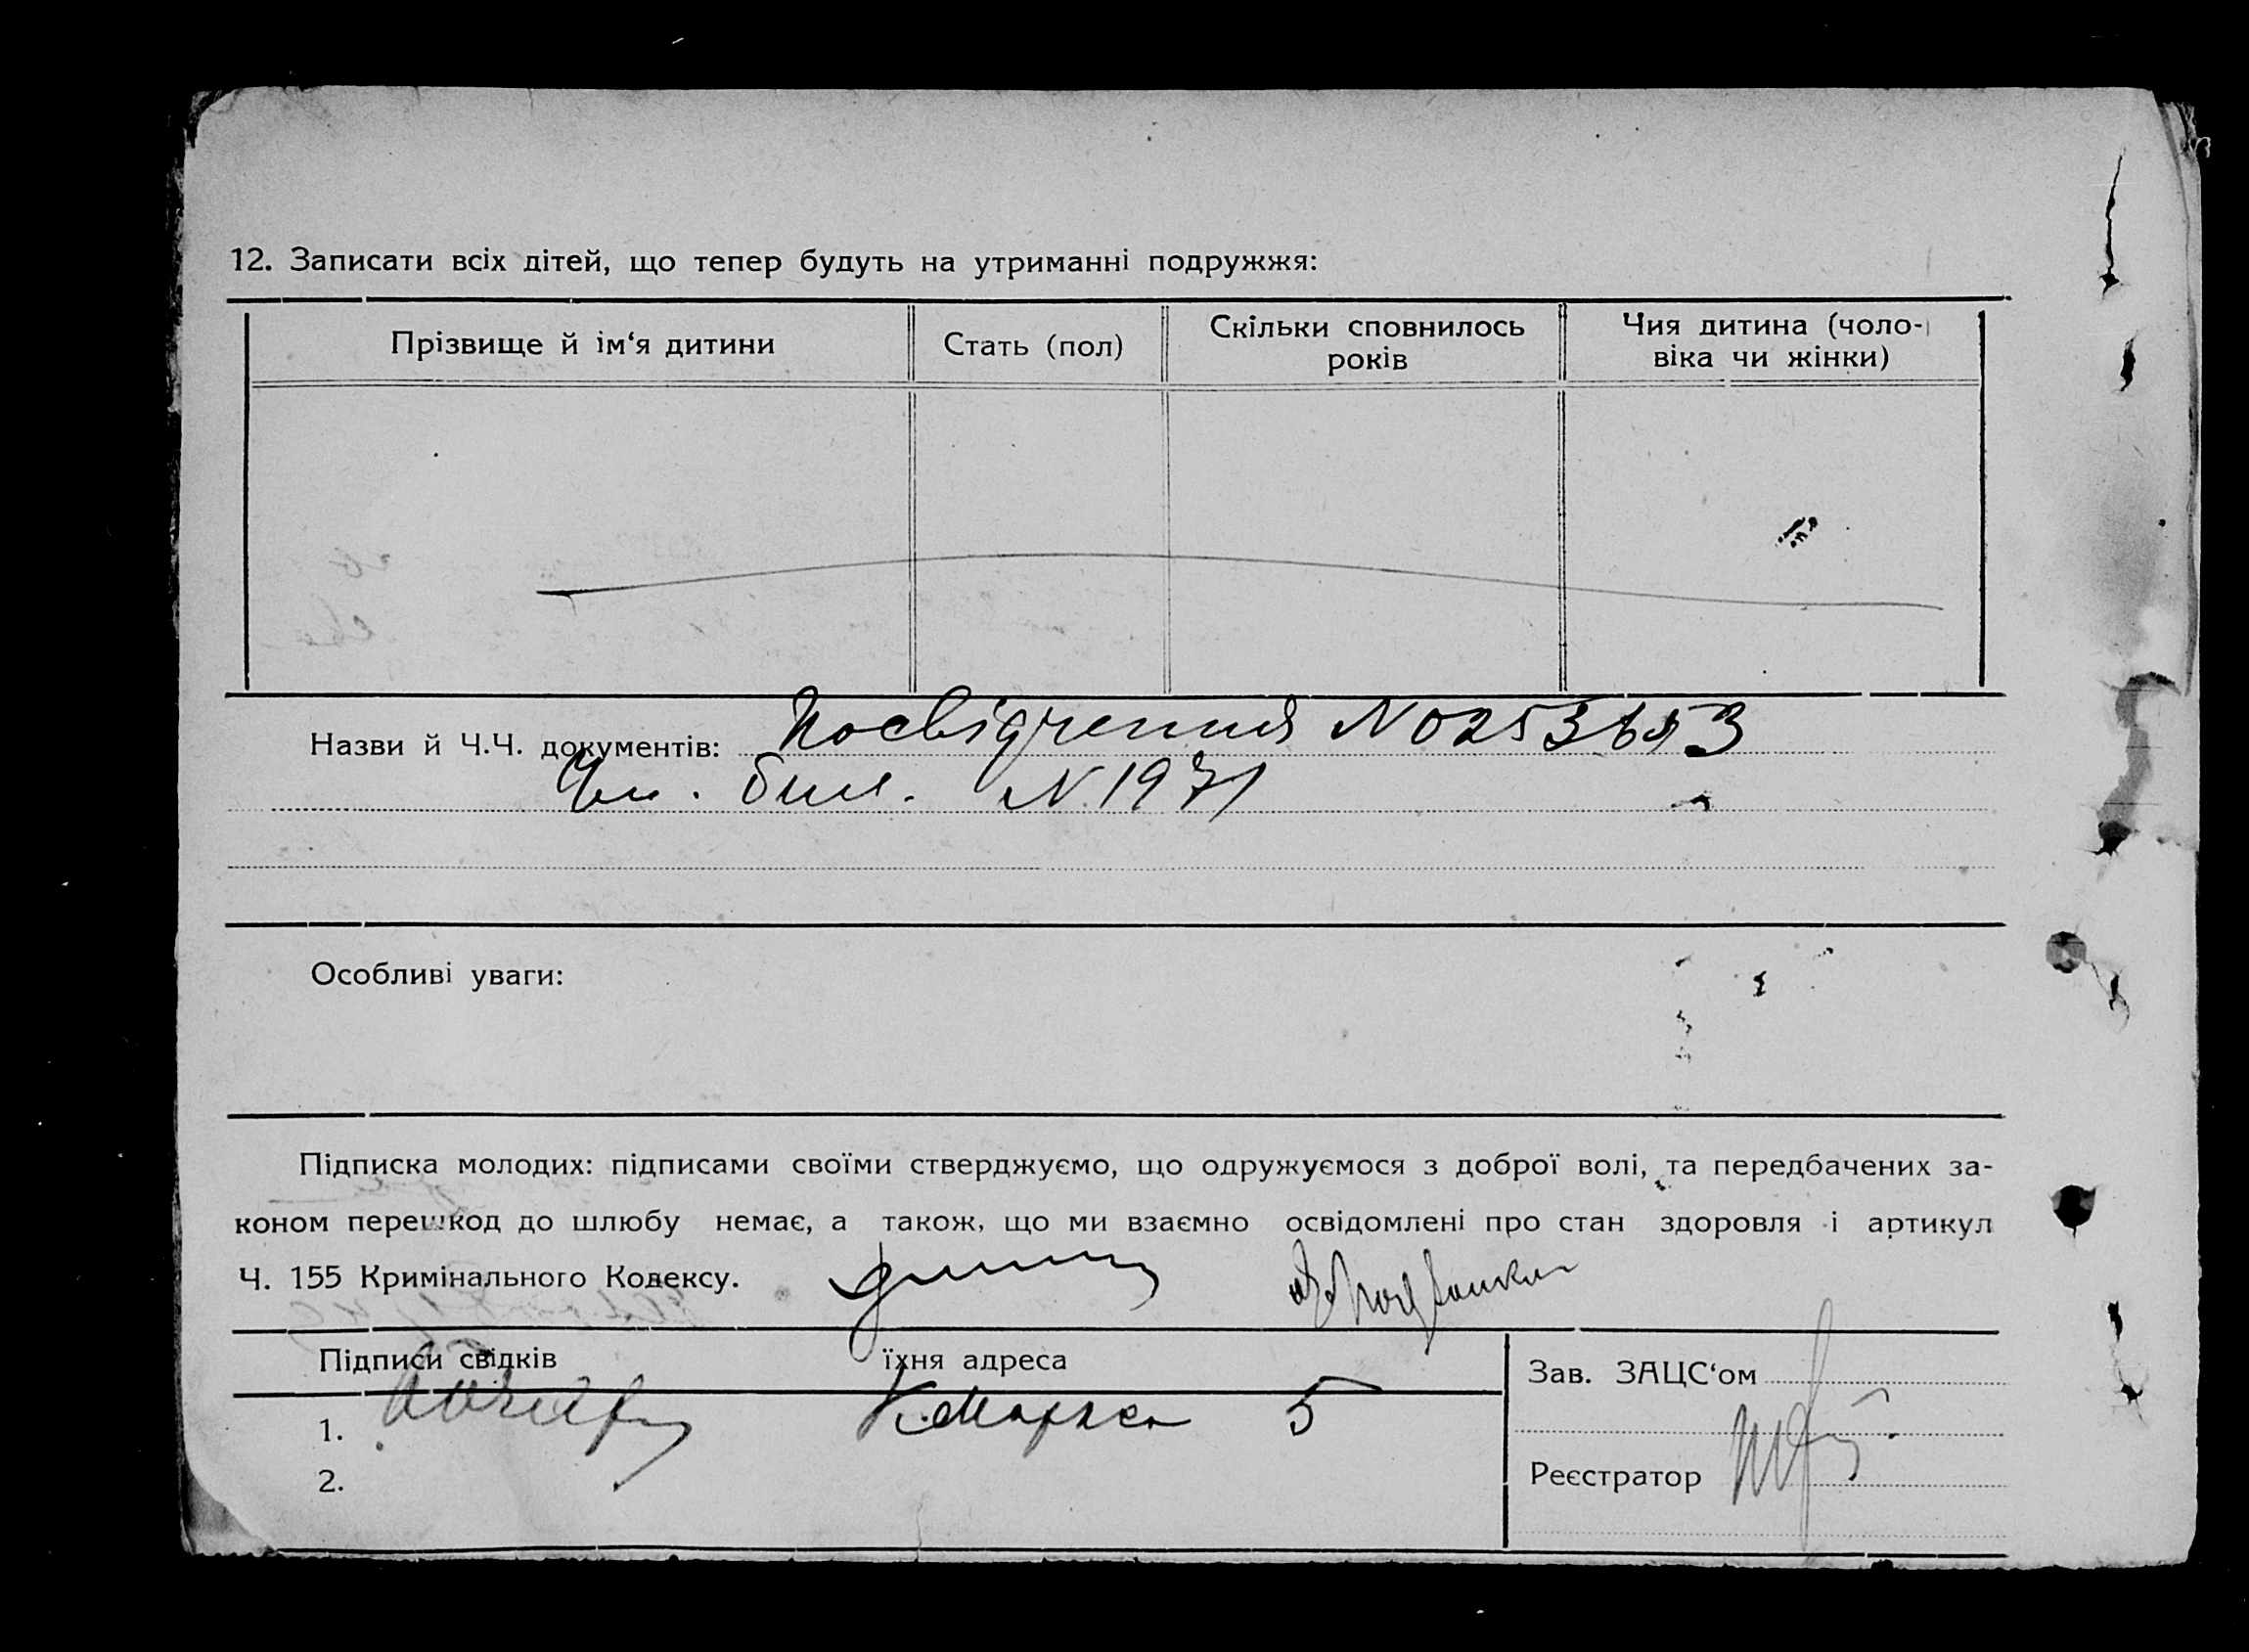 12. Записати всіх дітей, що тепер будуть на утриманні подружжя:
Прізвище й ім‘я дитини
Стать (пол)
Скільки сповнилось
років
Чия дитина (чоло-
віка чи жінки)
Назви й Ч.Ч. документів: Посвідчення N 0253
бил. N 1971
Особливі уваги:
Підписка молодих: підписами своїми стверджуємо, що одружуємося з доброї волі, та передбачених за-
коном перешкод до шлюбу немає, а також, що ми взаємно освідомлені про стан здоровля і артикул
Ч. 155 Кримінального Кодексу.
Підписи свідків їхня адреса
1. К. Маркса 5
2.
Зав. ЗАЦС‘ом
Реєстратор